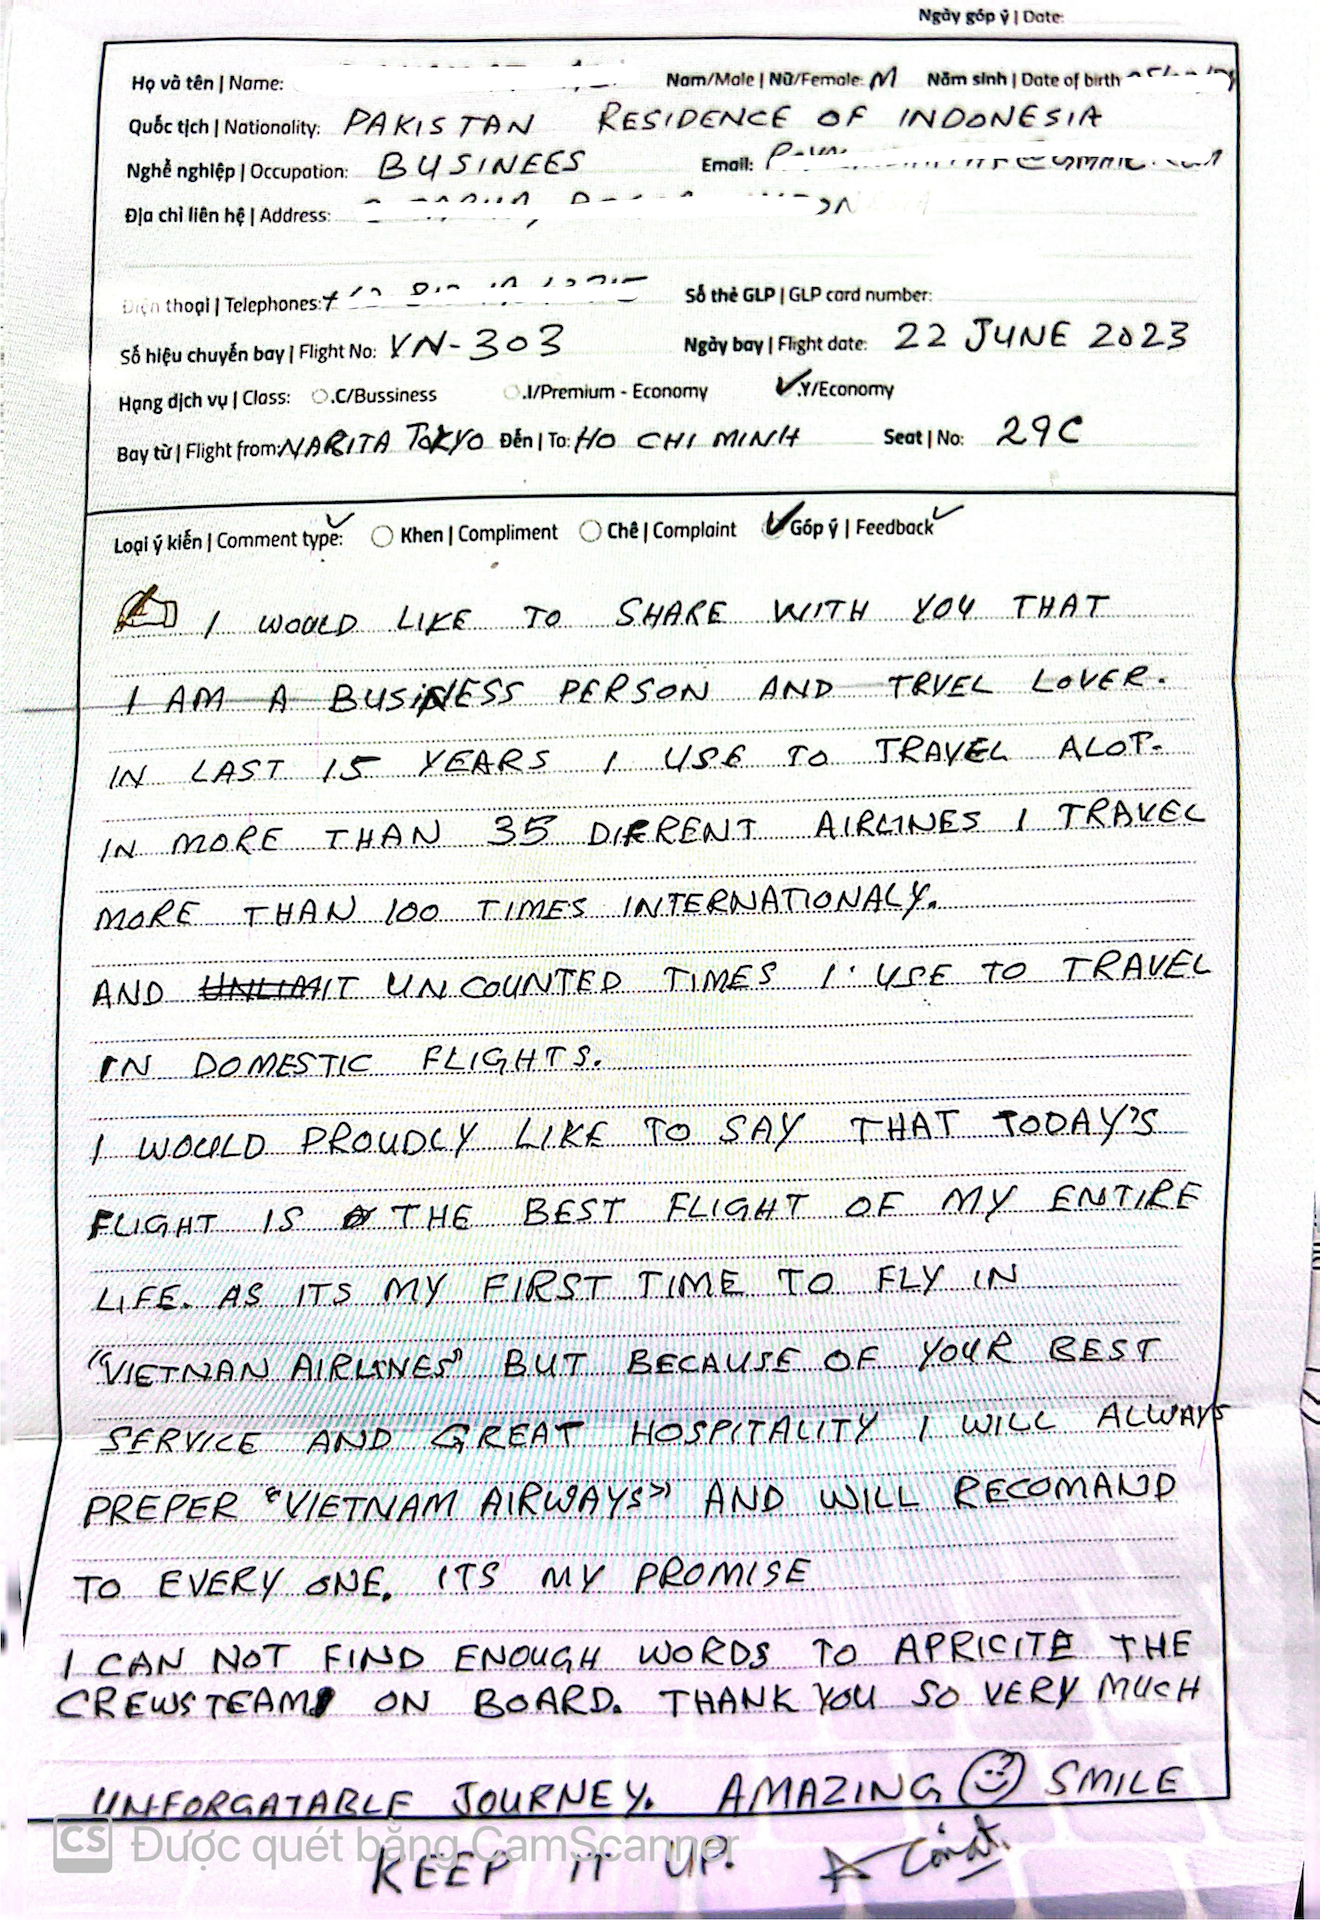 Ngày góp ý | Date:
Họ và tên | Name: Nam/Male | Nữ/Female: M Năm sinh | Date of birth
Quốc tịch | Nationality: PAKISTAN RESIDENCE OF INDONESIA
Nghề nghiệp | Occupation: BUSINEES Email:
Địa chỉ liên hệ | Address:
Điện thoại | Telephones: Số thẻ GLP | GLP card number:
Số hiệu chuyến bay | Flight No: VN-303 Ngày bay | Flight date: 22 JUNE 2023
Hạng dịch vụ | Class: .C/Bussiness .I/Premium - Economy .Y/Economy
Bay từ | Flight from: NARITA TOKYO Đến | To: HO CHI MINH Seat | No: 29C
Loại ý kiến | Comment type: Khen | Compliment Chê | Complaint Góp ý | Feedback
I WOULD LIKE TO SHARE WITH YOU THAT
I AM A BUSINESS PERSON AND TRVEL LOVER.
IN LAST 15 YEARS I USE TO TRAVEL ALOT.
IN MORE THAN 35 DIFRENT AIRLINES I TRAVEL
MORE THAN 100 TIMES INTERNATIONALY.
AND UNLIMIT UNCOUNTED TIMES I USE TO TRAVEL
IN DOMESTIC FLIGHTS.
I WOULD PROUDLY LIKE TO SAY THAT TODAY'S
FLIGHT IS THE BEST FLIGHT OF MY ENTIRE
LIFE. AS ITS MY FIRST TIME TO FLY IN
"VIETNAN AIRLINES" BUT BECAUSE OF YOUR BEST
SERVICE AND GREAT HOSPITALITY I WILL ALWAYS
PREPER "VIETNAM AIRWAYS" AND WILL RECOMAND
TO EVERY ONE. ITS MY PROMISE
I CAN NOT FIND ENOUGH WORDS TO APRICITE THE
CREWS TEAM ON BOARD. THANK YOU SO VERY MUCH
UNFORGATABLE JOURNEY. AMAZING SMILE
CS Được quét bằng CamScanner
KEEP IT UP.